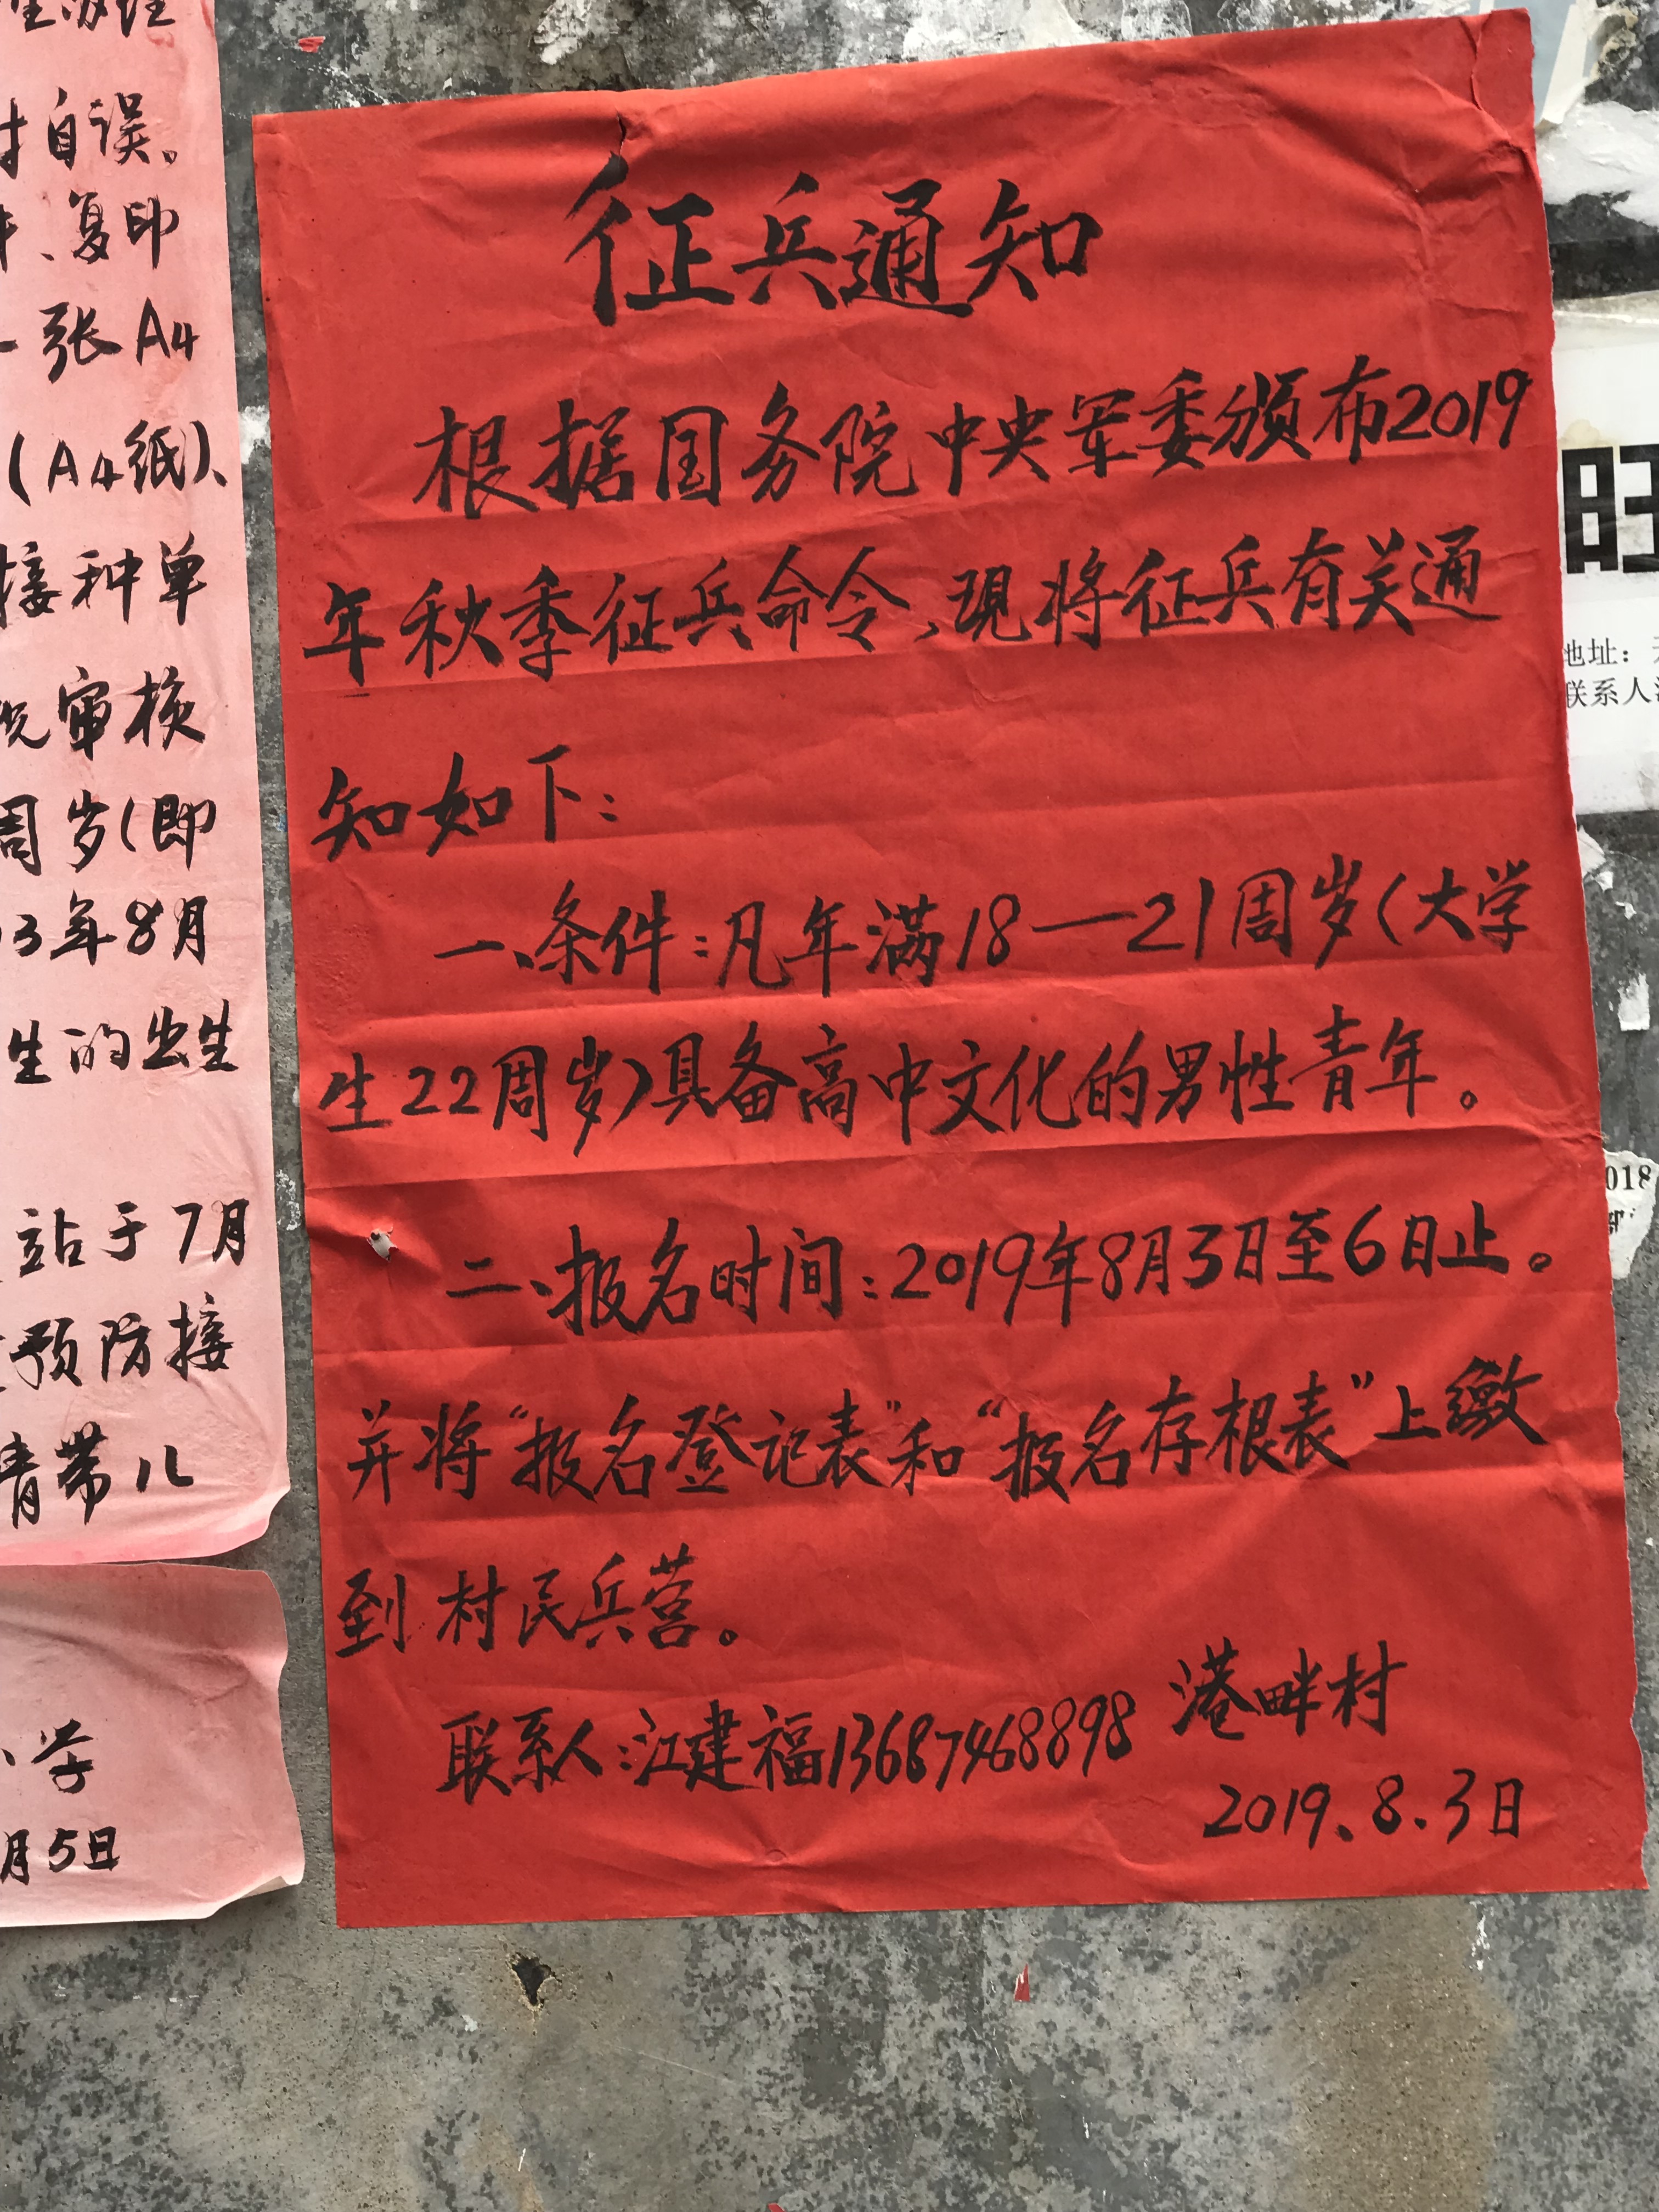 征兵通知
根据国务院中央军委颁布2019
年秋季征兵命令、现将征兵有关通
知如下:
一、条件:凡年满18—21周岁(大学
生22周岁)具备高中文化的男性青年。
二、报名时间:2019年8月3日至6日止。
并将“报名登记表”和“报名存根表”上缴
到村民兵营。
联系人:江建福13687468898 港畔村
2019.8.3日
自误。
、复印
张A4
(A4纸)、
接种单
审核
周岁(即
3年8月
生的出生
站于7月
预防接
带儿
学
月5日
旺
地址:
联系人
018